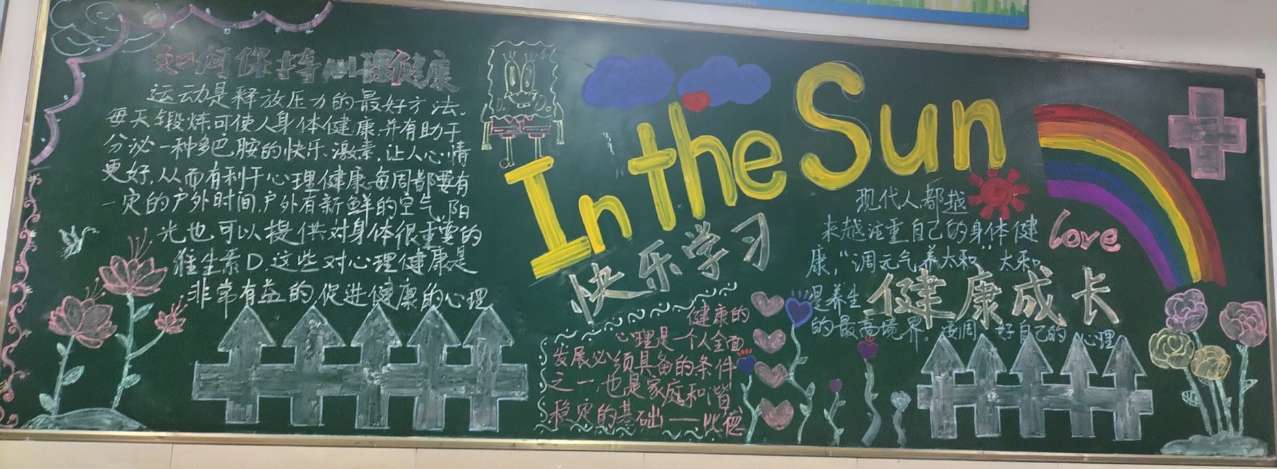 如何保持心理健康
运动是释放压力的最好方法.
每天锻炼可使人身体健康.并有助于
分泌一种多巴胺的快乐激素.让人心情
更好.从而有利于心理健康.每周都要有
一定的户外时间.户外有新鲜的空气.阳
光也可以提供对身体很重要的
维生素D.这些对心理健康是
非常有益的.促进健康的心理
In the Sun
快乐学习
健康的
心理是一个人全面
发展必须具备的条件
之一.也是家庭和谐
稳定的基础
现代人都越
来越注重自己的身体健
康,"调元气,养太和"太和
是养生
的最高境界,调好自己的心理
健康成长
love